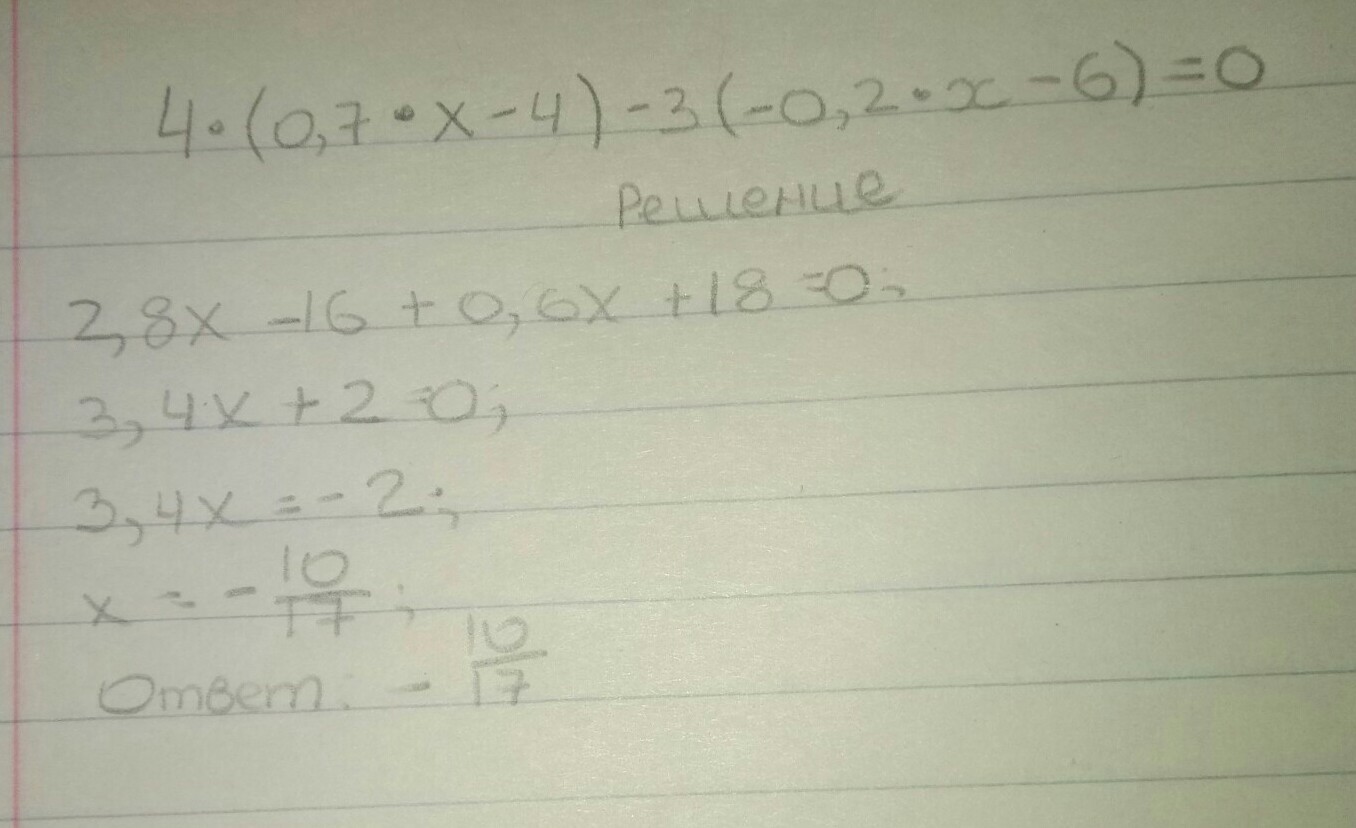 4·(0,7·x-4)-3(-0,2·x-6)=0
Решение
2,8x -16 + 0,6x +18 =0;
3,4x + 2 =0;
3,4x = - 2;
x = - 10/17;
Ответ: - 10/17